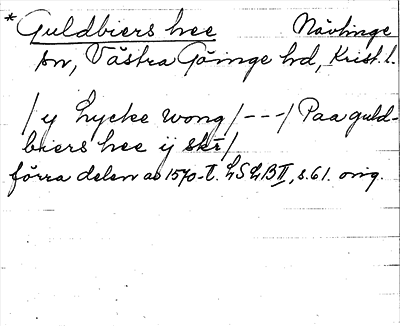 * Guldbiers hee Nävlinge
sn, Västra Göinge hd, Krist. l.
/ y Lycke wong / - - - / Paa guld-
biers hee ij skr /
förra delen av 1570-t. LSLB II, s. 61. orig.